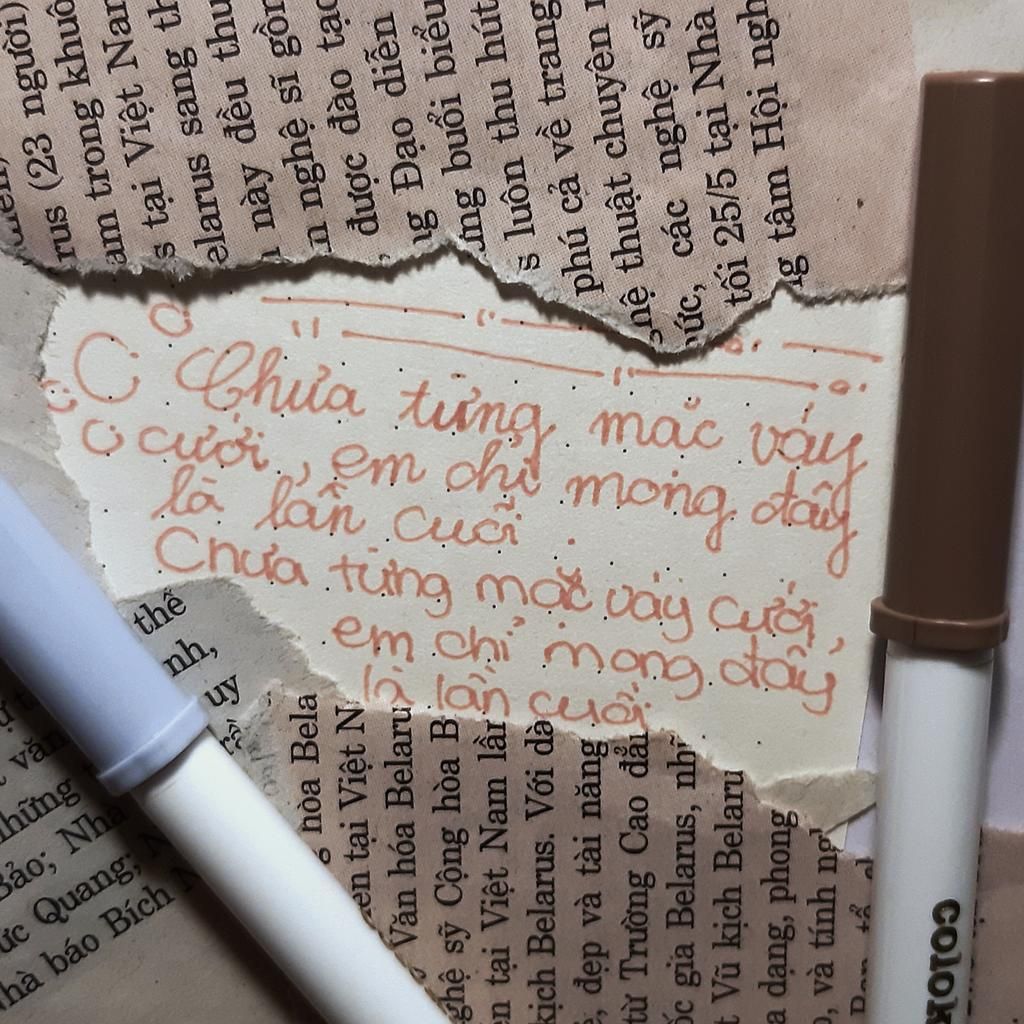 (23 người)
trong khuôn
tại Việt Nam
sang
này đều thu
nghệ sĩ gồm
được đào tạo
Đạo diễn
buổi biểu
luôn thu hút
phú cả về trang
thuật chuyên
các nghệ sỹ
tối 25/5 tại Nhà
tâm Hội
Chưa từng mặc váy
cưới, em chỉ mong đây
là lần cuối.
Chưa từng mặc váy cưới,
em chỉ mong đây
là lần cuối
thể
nh,
uy
văn
Bảo; Nhà
Quang;
báo Bích
hòa Bela
tại Việt N
Văn hóa Belaru
sỹ Cộng hòa B
tại Việt Nam lần
kịch Belarus. Với
đẹp và tài năng
từ Trường Cao đẳ
gia Belarus,
Vũ kịch Belaru
dạng, phong
và tính
COLOK